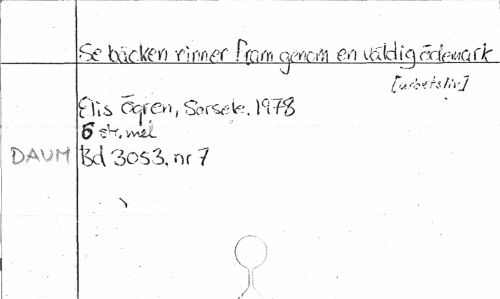 Se bäcken rinner fram genom en väldig ödemark
[arbetsliv]
Elis Ögren, Sorsele. 1978
6 str. mel
DAUM Bd 3053, nr 7